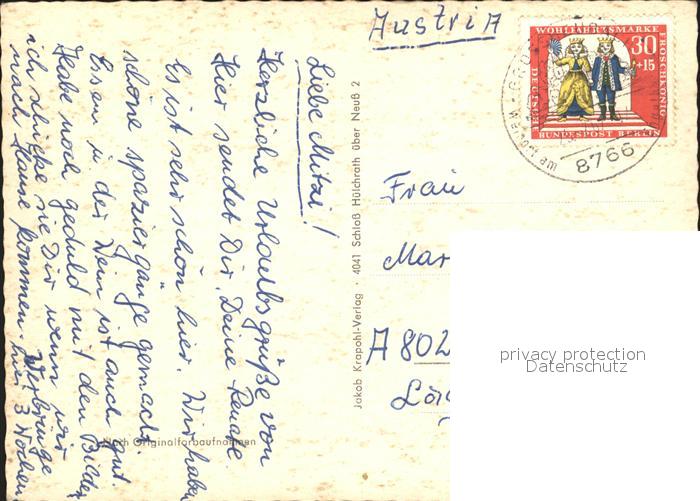 Austria
Liebe Mitzi!
Herzliche Urlaubsgrüße von
hier sendet Dir Deine
Es ist sehr schön hier. Wir haben
schöne spaziergänge gemacht.
Essen u der Wein ist auch gut.
Habe noch geduld mit den Bilder
ich schicke sie Dir wenn wir
nach Hause kommen.
3 Wochen
Jakob Krapohl-Verlag · 4041 Schloß Hülchrath über Neuß 2
Nach Originalfarbaufnahmen
WOHLFAHRTSMARKE
30
+15
FROSCHKÖNIG
DEUTSCHE
BUNDESPOST BERLIN
8766
Frau
Mar
A 802
privacy protection
Datenschutz